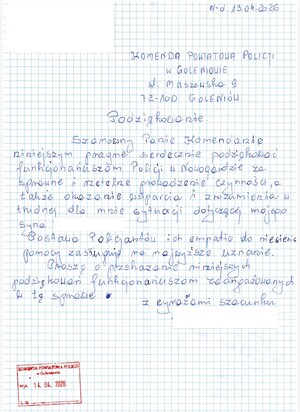 N-d. 13.04.2026
KOMENDA POWIATOWA POLICJI
W GOLENIOWIE
ul. MASZEWSKA 9
72-100 GOLENIÓW
Podziękowanie
Szanowny Panie Komendancie
niniejszym pragnę serdecznie podziękować
funkcjonariuszom Policji w Nowogardzie za
sprawne i rzetelne prowadzenie czynności, a
także okazanie wsparcia i zrozumienia w
trudnej dla mnie sytuacji dotyczącej mojego
syna.
Postawa Policjantów ich empatia do niesienia
pomocy zasługują na najwyższe uznanie.
Proszę o przekazanie niniejszych
podziękowań funkcjonariuszom zaangażowanych
w tę sprawę.
z wyrazami szacunku
KOMENDA POWIATOWA POLICJI
w Goleniowie
14. 04. 2026